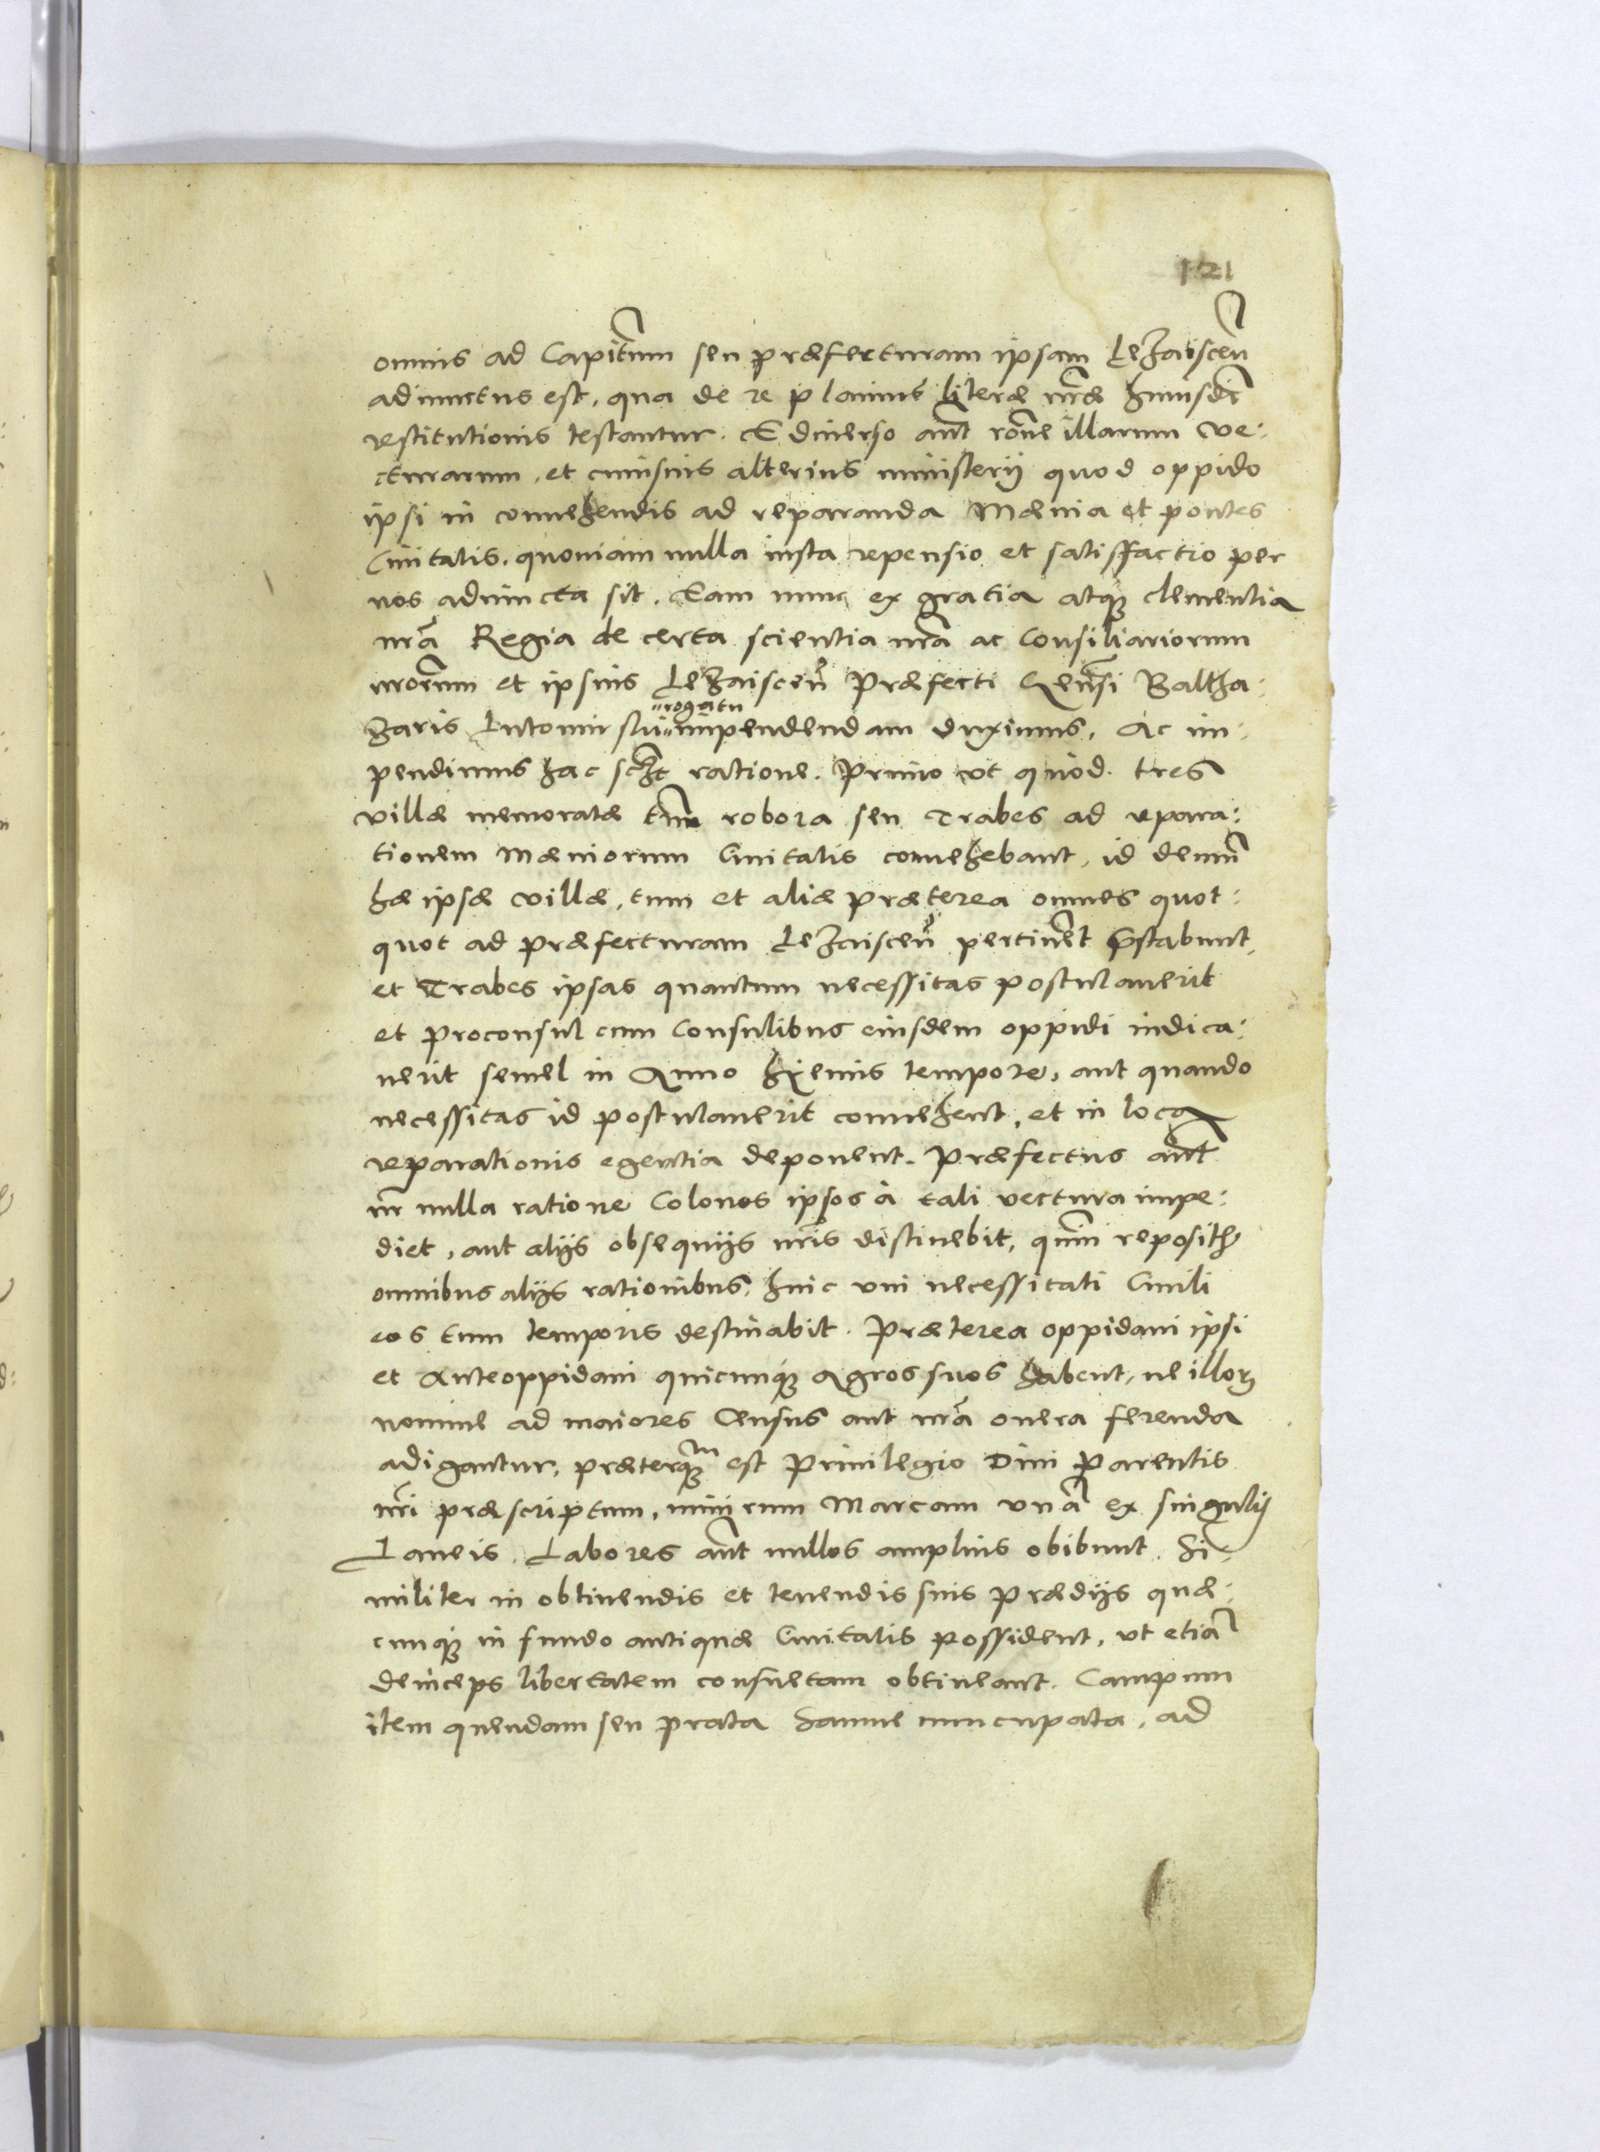 121
omnis ad Capitm̃um seu præfecturam ipsam Leʒaiscen̄
adiunctus est, qua de re planius literæ nr̃æ huiusdē
restitutionis testantur. E diuerso aut̃ rõne illarum Ve:
cturarum, et cuiusuis alterius ministerij quod oppido
ipsi in conuehendis ad reparanda Mænia et pontes
Ciuitatis. quoniam nulla iusta repensio et satisfactio per
nos adiuncta sit. Eam nunc ex gratia atq; clementia
nr̃a Regia de certa scientia nr̃a ac Consiliariorum
nr̃orum et ipsius Leʒaiscen̄ Præfecti Balthа:
ʒaris Lutomirsky rogatu impendendam duximus, Ac im:
pendimus hac sclt̃ ratione. Primo vt quod tres
villæ memoratæ tm̃ robora seu Trabes ad repara:
tionem Mæniorum Ciuitatis conuehebant, id demū
hæ ipsæ villæ, tum et aliæ præterea omnes quot:
quot ad præfecturam Leʒaiscen̄ pertinēt p̃stabunt,
et Trabes ipsas quantum necessitas postulauerit
et Proconsul cum Consulibus eiusdem oppidi indica:
uerit semel in Anno hyemis tempore, aut quando
necessitas id postulauerit conuehent, et in loca
reparationis egentia deponent. Præfectus aut̃
nr̃ nulla ratione Colonos ipsos à tali vectura impe:
diet, aut alijs obsequijs nr̃is distinebit, quin repositis
omnibus alijs rationibus, huic vni necessitati Ciuili
eos tum temporis destinabit. Præterea oppidani ipsi
et Anteoppidani quicunq; Agros suos habent, ne illorꝝ
nomine ad maiores Census aut nr̃a onera ferenda
adigantur, præterq;m est Priuilegio Diui Parentis
nr̃i præscriptum, nimirum Marcam vnā ex singulis
Laneis. Labores aut̃ nullos amplius obibunt. Si:
militer in obtinendis et tenendis suis Prædijs quæ:
cunq; in fundo antiquæ Ciuitatis possident, vt etiā
deinceps libertatem consuetam obtineant. Campum
item quendam seu prata nuncupata, ad